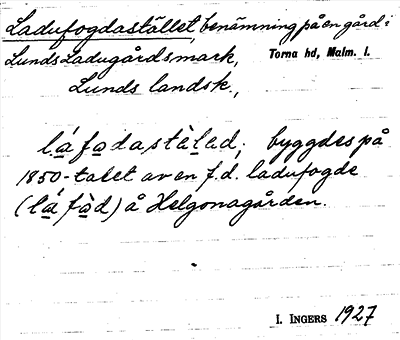 Ladufogdastället, benämning på en gård i
Lunds Ladugårdsmark, Torna hd, Malm. l.
Lunds landsk.,
lá fadastàlad; byggdes på
1850-talet av en f.d. ladufogde
(lá fàd) å Helgonagården.
I. INGERS 1927